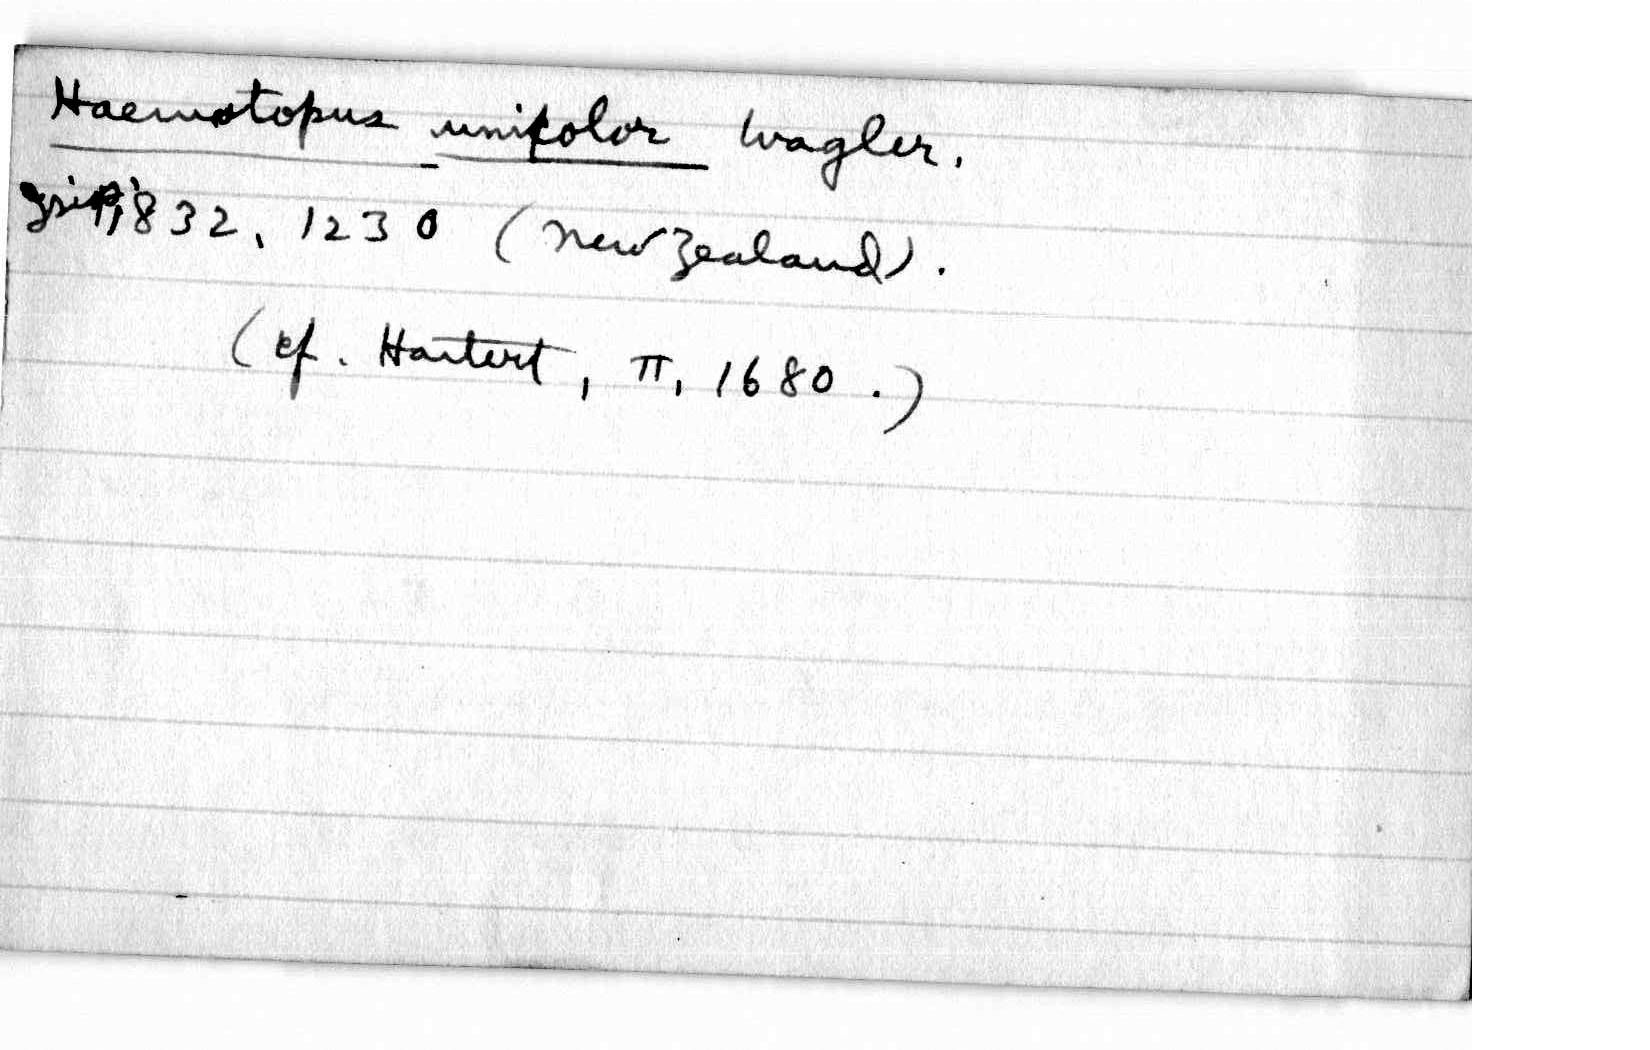 Haematopus unicolor Wagler.
Isis, 1832, 1230 (New Zealand).
(cf. Hartert, II, 1680.)